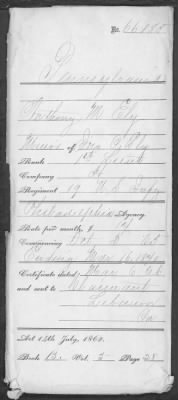 No. 66885
Pennsylvania
Anthony M. Ely
Minor of John B. Ely
Rank 1st Lieut
Company H
Regiment 19 U S Infy
Philadelphia Agency
Rate per month, $ 17
Commencing
Ending Mar 16 18
Certificate dated
and sent to Claimant
Lebanon
Pa
Act 14th July, 1862.
Book B. Vol. 5 Page 28